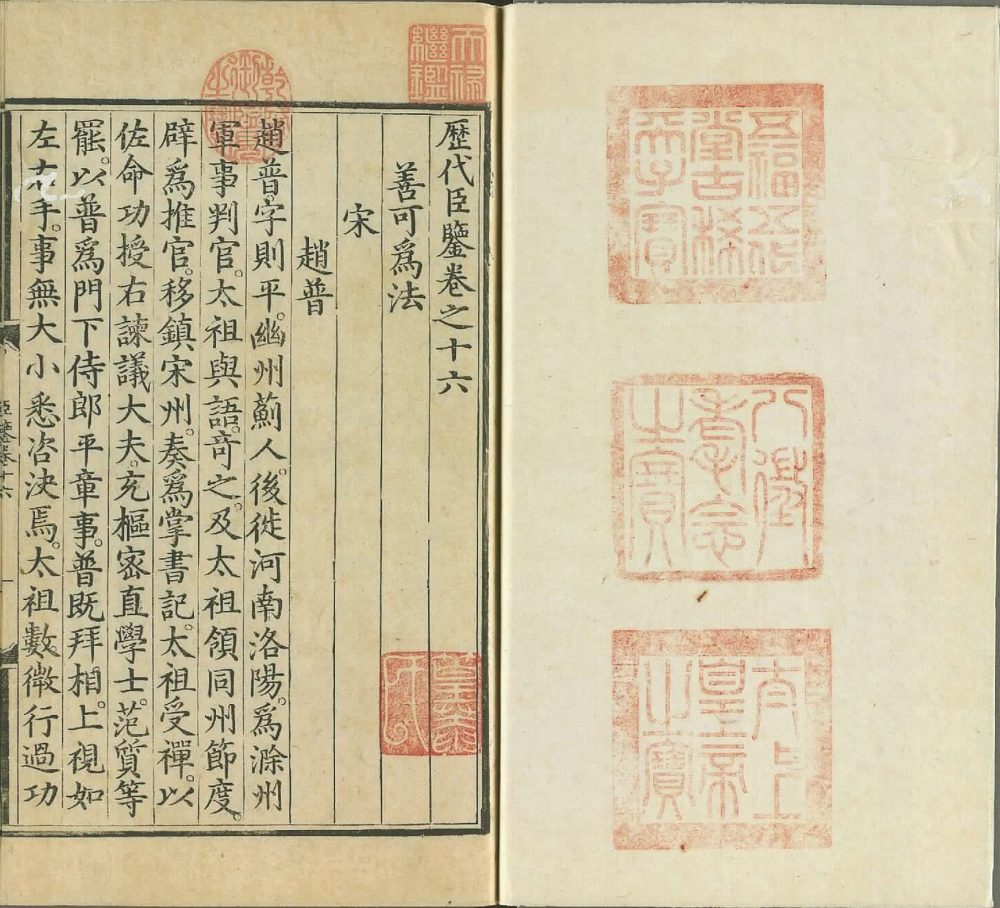 五福五代
堂古稀
天子寶
八徵
耄念
之寶
太上
皇帝
之寶
天祿
繼鑑
乾隆
御覽
之寶
歷代臣鑒卷之十六
善可爲法
宋
趙普
趙普。字則平。幽州薊人。後徙河南洛陽。爲滁州
軍事判官。太祖與語。竒之。及太祖領同州節度。
辟爲推官。移鎮宋州。奏爲掌書記。太祖受禪。以
佐命功授右諫議大夫。充樞密直學士。范質等
罷。以普爲門下侍郎平章事。普既拜相。上視如
左右手。事無大小悉咨決焉。太祖數微行過功